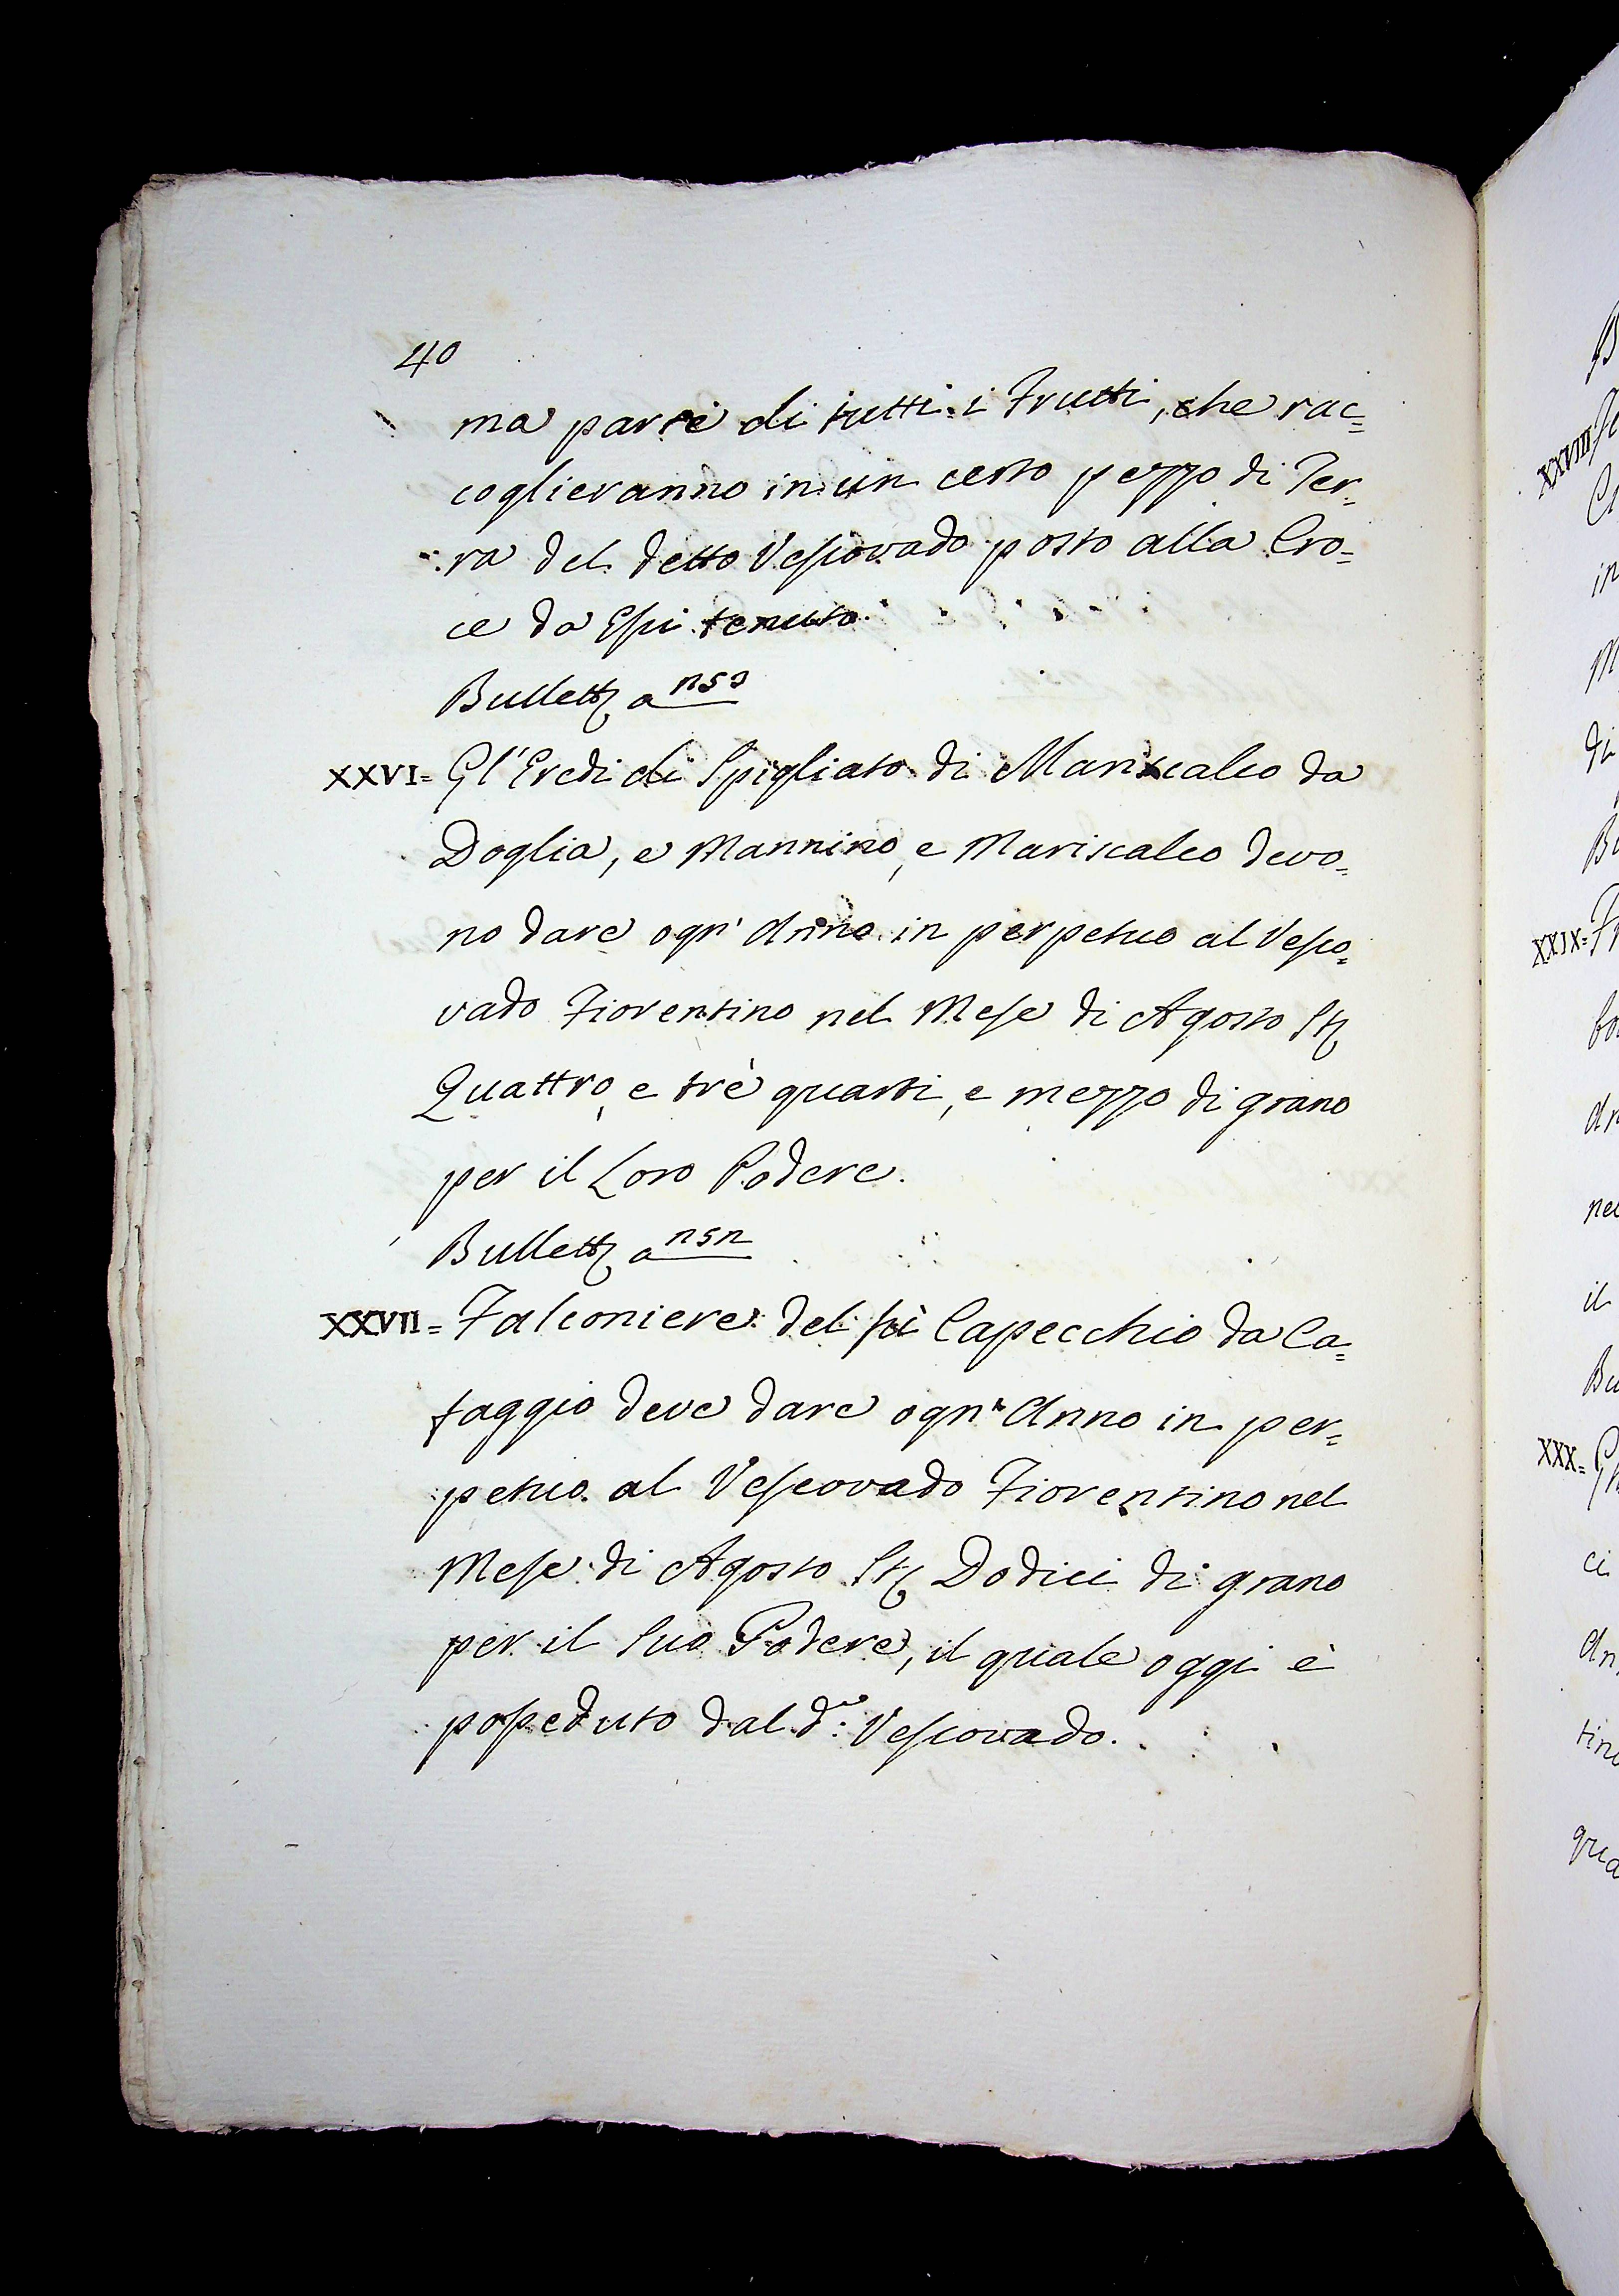 40
ma parte di tutti i Frutti, che rac=
coglieranno in un certo pezzo di Ter=
ra del detto Vescovado posto alla Cro=
ce da Essi tenuto.
Bullett a
XXVI= Gl'Eredi di Spigliato di Mariscalco da
Doglia, e Mannino, e Mariscalco devo=
no dare ogn' Anno in perpetuo al Vesco=
vado Fiorentino nel Mese di Agosto St
Quattro, e trè quarti, e mezzo di grano
per il Loro Podere.
Bullett a
XXVII= Falconiere del Capecchio da Ca=
faggio deve dare ogn' Anno in per=
petuo al Vescovado Fiorentino nel
Mese di Agosto St Dodici di grano
per il Suo Podere, il quale oggi è
posseduto dal d.o Vescovado.
XXVIII
in
di
XXIX=
nel
il
XXX=
ci